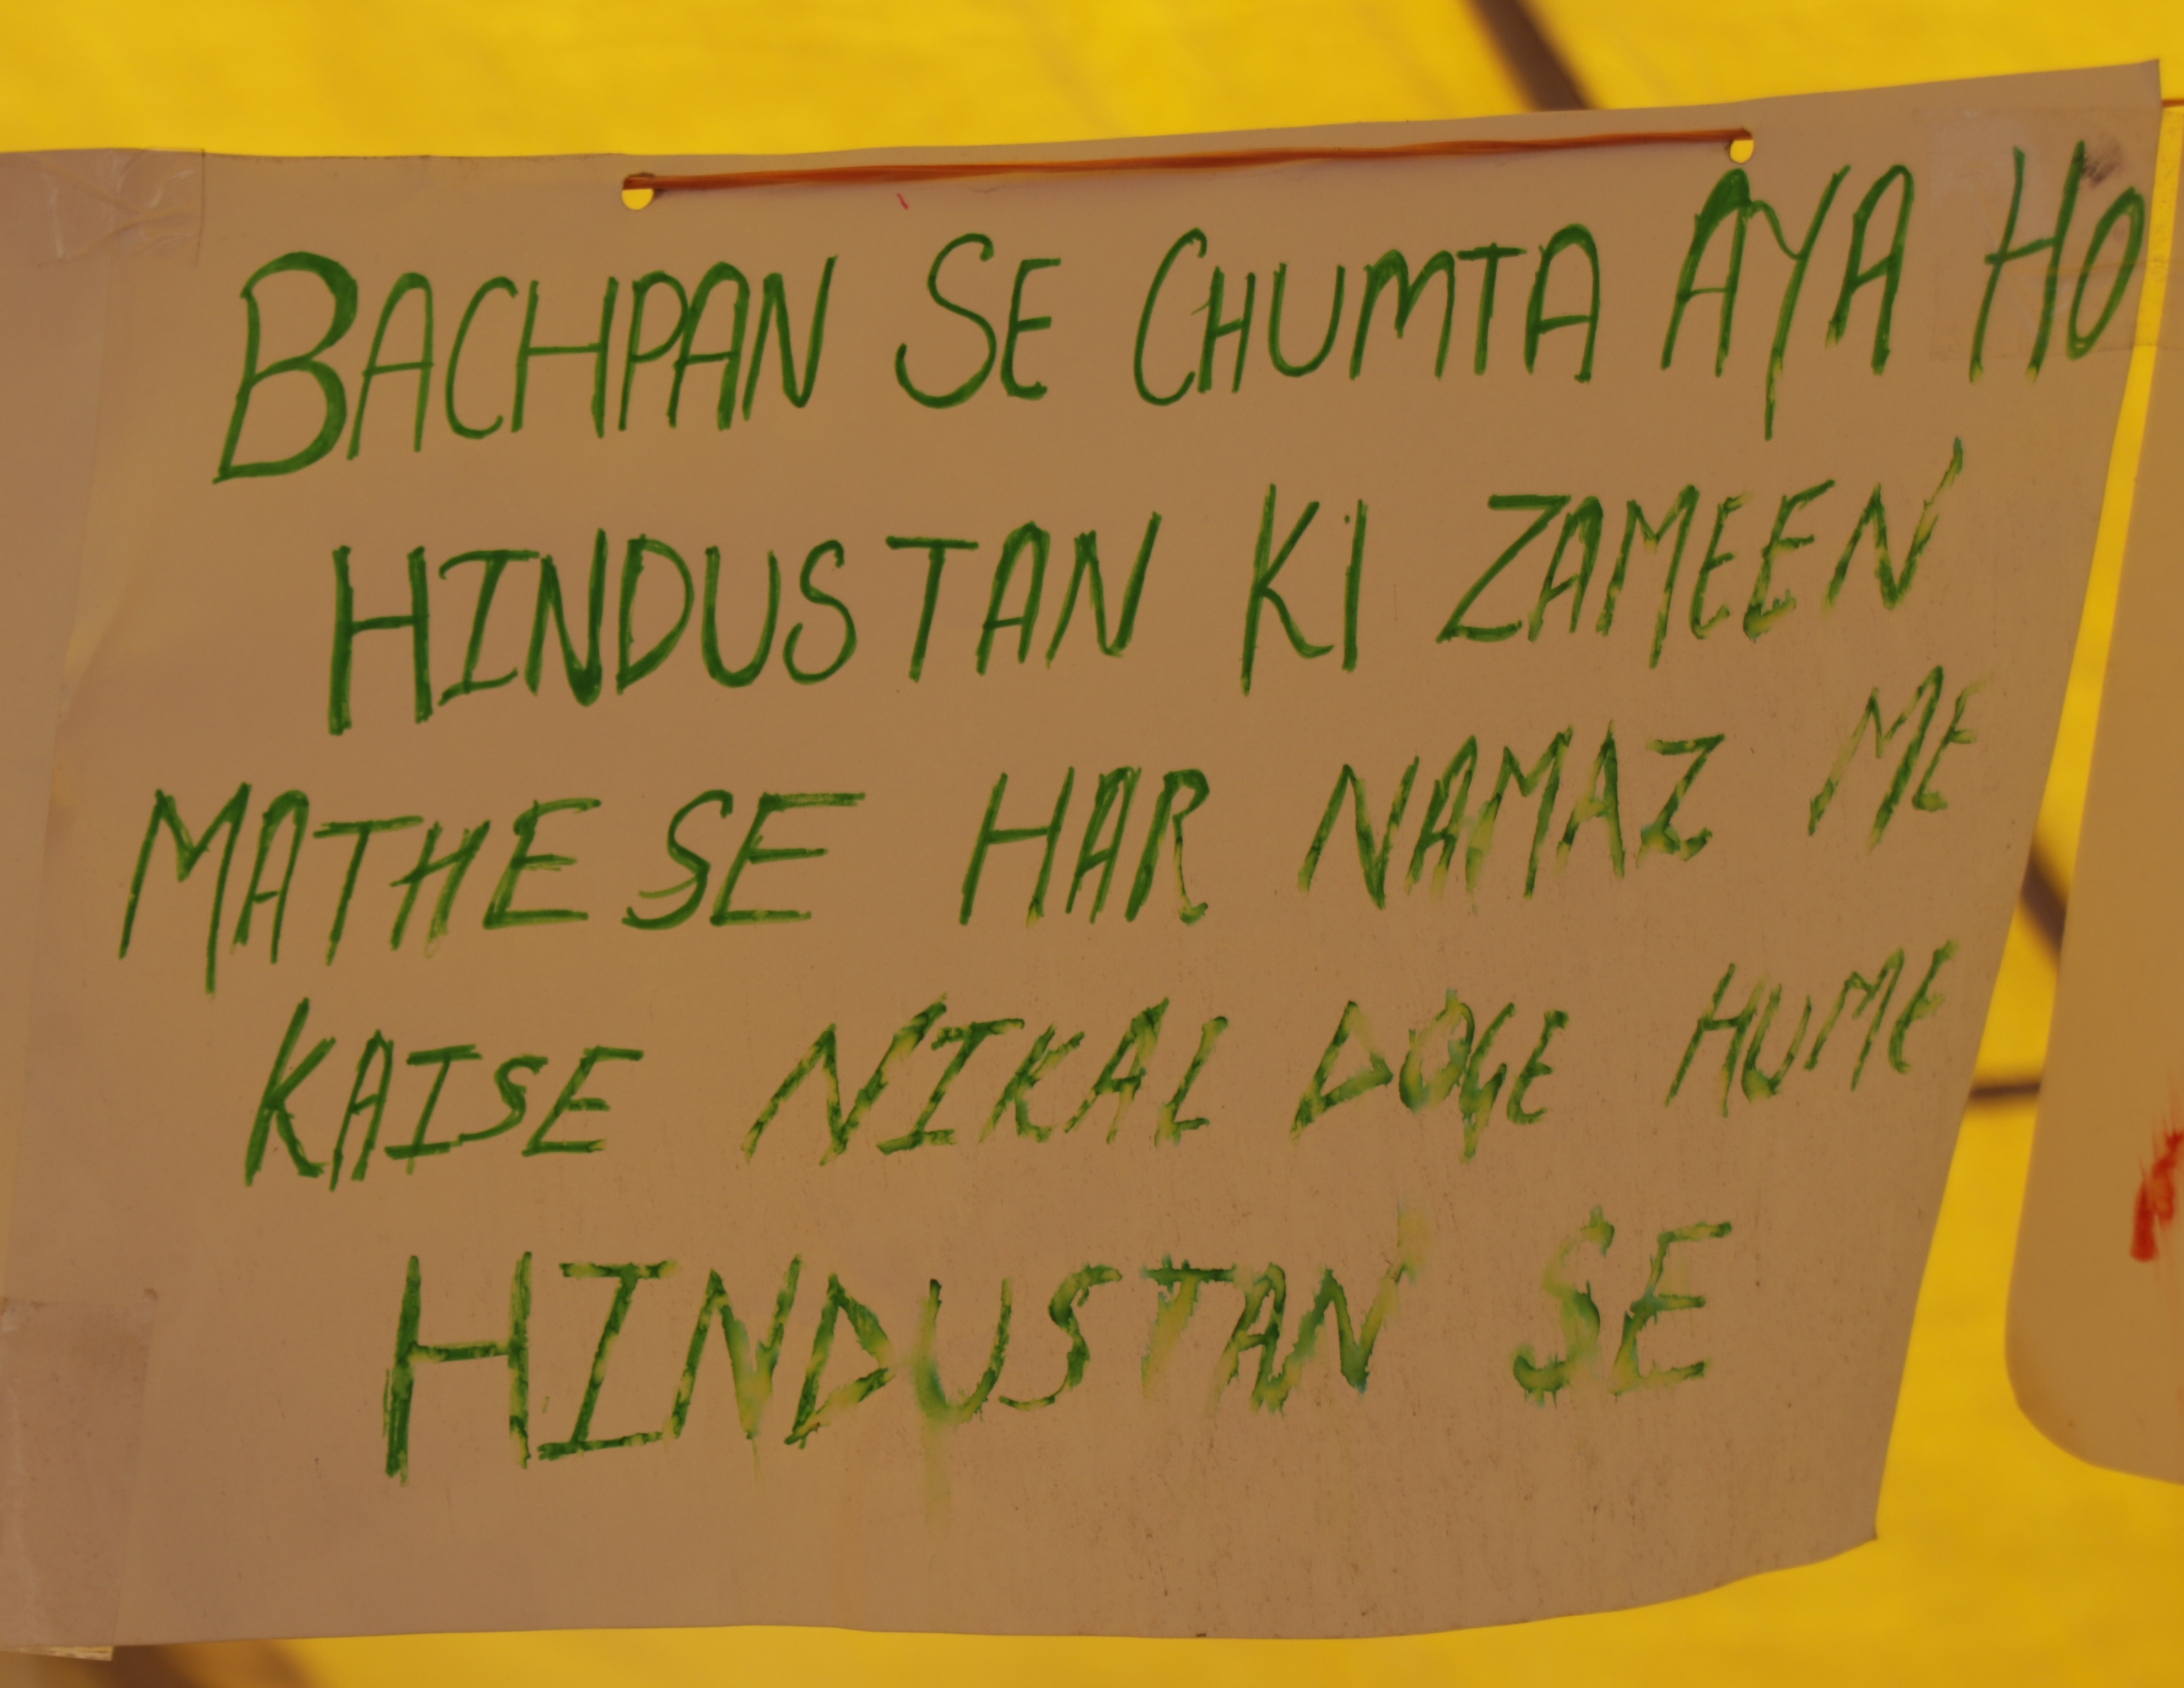 BACHPAN SE CHUMTA AYA HO
HINDUSTAN KI ZAMEEN
MATHE SE HAR NAMAZ ME
KAISE NIKAL DOGE HUME
HINDUSTAN SE